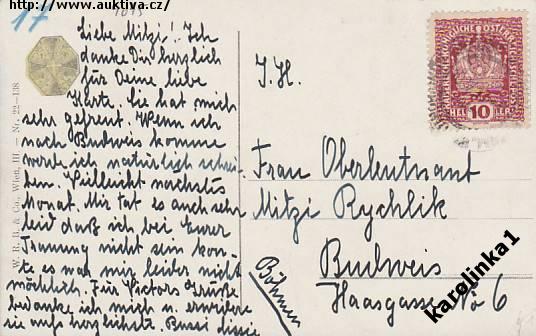 www.auktiva.cz
17
1918
Liebe Mitzi! Ich
danke Dir herzlich
für Deine liebe
Karte. Sie hat mich
sehr gefreut. Wenn ich
nach Budweis komme
werde ich natürlich schrei-
ben. Vielleicht nächstes
Monat. Mir tat es auch sehr
leid daß ich bei Eurer
Trauung nicht sein konn-
te es war mir leider nicht
möglich. Für Victors Grüße
bedanke ich mich u. erwidere
sie aufs herzlichste. Bussi
W. R. B. & Co., Wien, III. — Nr. 22—138
I. H.
KAISERLICHE KÖNIGLICHE ÖSTERREICHISCHE POST
HEL 10 LER
Frau Oberleutnant
Mitzi Rychlik
Budweis
Haasgasse No 6
Böhmen
karolinka1